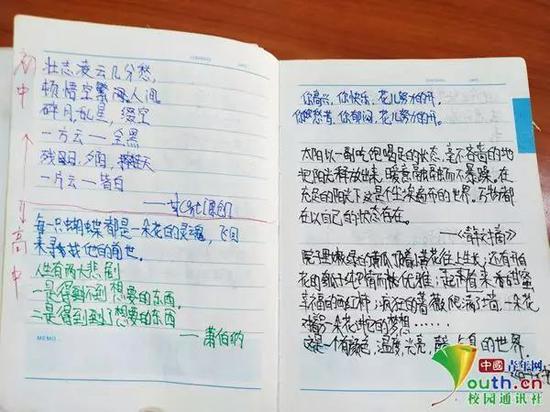 初中
高中
壮志凌云几分愁，
顿悟空繁闹人间，
碎月，乱星，缀空
一方云——全黑
残阳，夕阳，
一片云——皆白
每一只蝴蝶都是一朵花的灵魂，飞回
来寻找他的前世。
人生有两大悲剧
一是得不到想要的东西
二是得到了想要的东西
——萧伯纳
MEMO
你高兴，你快乐，花儿努力的开。
你忧愁着，你郁闷，花儿努力的开。
太阳以一副吃饱喝足的状态，毫不吝啬的地
把阳光释放出来，暖意融融而不暴躁。在
充足的阳光下这是个生溪遍布的世界。万物都
在以自己的状态存在。
院子里嫩绿的黄瓜顶着黄花往上生长，还有开白
花的
幸福的西红柿；疯狂的蔷薇爬满了墙，一朵花
对着另一朵花讲它的梦想……
这是一个有颜色，温度，光亮，的世界。
中國青年网
Youth.cn
校园通讯社